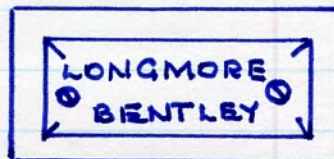 LONGMORE
BENTLEY